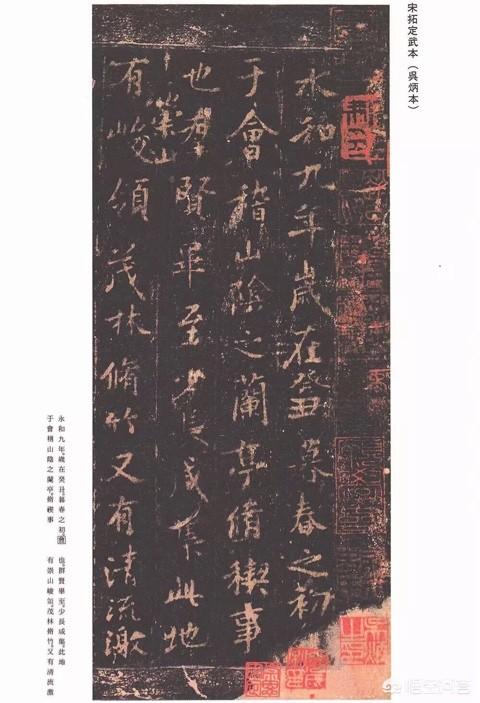 宋拓定武本（吳炳本）
永和九年歲在癸丑暮春之初
于會稽山陰之蘭亭脩稧事
也羣賢畢至少長咸集此地
有崇山峻領茂林脩竹又有清流激
永和九年，歲在癸丑，暮春之初，會
于會稽山陰之蘭亭，脩禊事
也。群賢畢至，少長咸集。此地
有崇山峻領，茂林脩竹，又有清流激
悟空问答